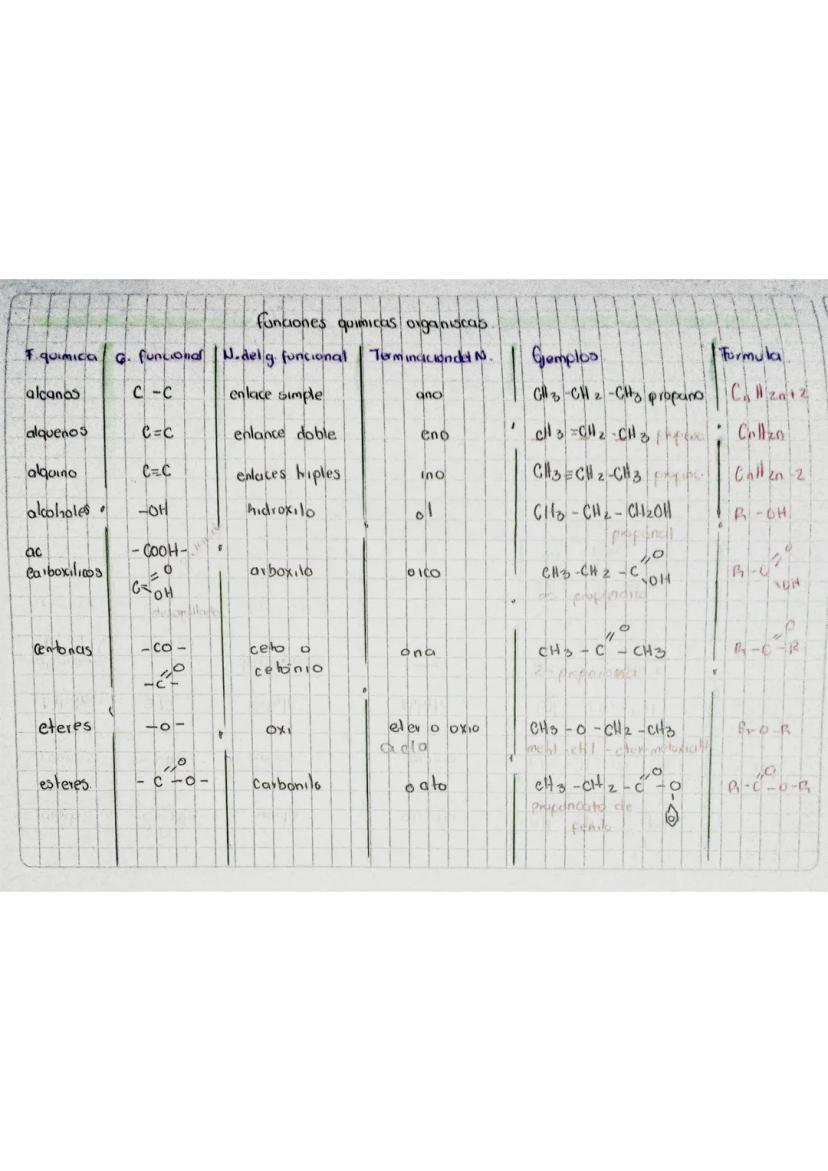 funciones quimicas organiscas.
F. quimica G. funcional N. del g. funcional Terminacion del N. Ejemplos Formula
alcanos C - C enlace simple ano CH3 - CH2 - CH3 propano CnH2n+2
alquenos C=C enlance doble eno CH3 = CH2 - CH3 CnH2n
alquino C≡C enlaces triples ino CH3 ≡ CH2 - CH3 CnH2n-2
alcoholes -OH hidroxilo ol CH3 - CH2 - CH2OH R - OH
ac - COOH -
carboxilicos C=O OH arboxilo oico CH3 - CH2 - C=O OH R - C=O OH
centonas - CO - ceto o ona CH3 - C=O - CH3 R - C=O - R
-C=O- cetonio
eteres -O- oxi eter o oxio CH3 - O - CH2 - CH3 R-O-R
esteres. - C=O - O - carbonilo oato CH3 - CH2 - C=O - O R - C=O - O - R
propanoato de
fenilo